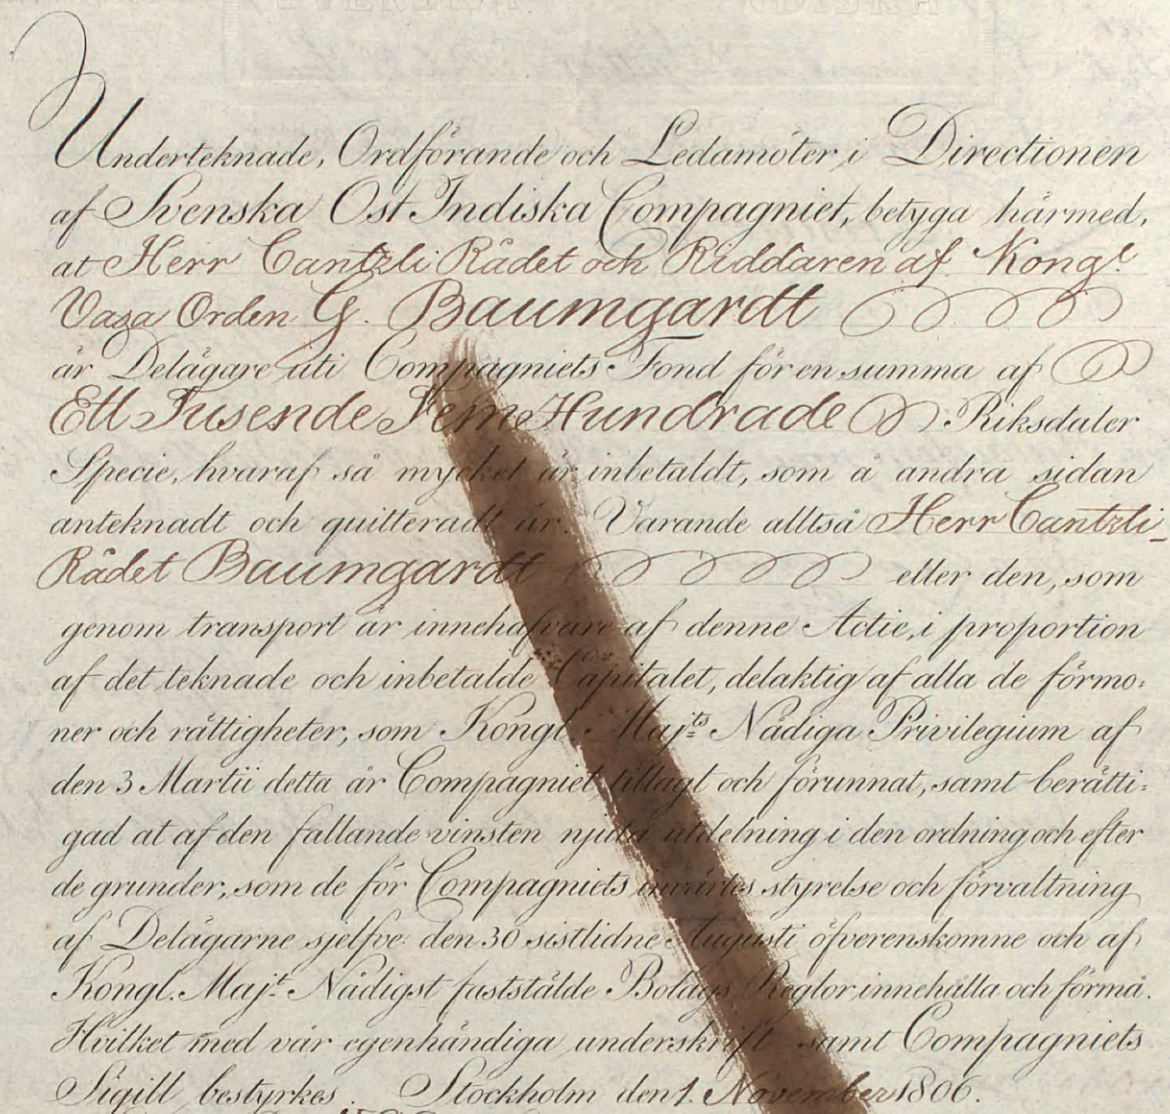 Underteknade, Ordförande och Ledamöter, i Directionen
af Svenska Ost Indiska Compagniet, betyga härmed,
at Herr Cantzli Rådet och Riddaren af Kongl.
Vasa Orden G. Baumgardt
är Delägare uti Compagniets Fond för en summa af
Ett Tusende Fem Hundrade Riksdaler
Specie, hvaraf så mycket är inbetaldt, som å andra sidan
anteknadt och quitteradt är. Varande alltså Herr Cantzli-
Rådet Baumgardt eller den, som
genom transport är innehafvare af denne Actie, i proportion
af det teknade och inbetalde Capitalet, delaktig af alla de förmo:
ner och rättigheter, som Kongl. Maj:ts Nådiga Privilegium af
den 3 Martii detta år Compagniet tillagt och förunnat, samt berätti:
gad at af den fallande vinsten njuta utdelning i den ordning och efter
de grunder, som de för Compagniets invärtes styrelse och förvaltning
af Delägarne sjelfve den 30 sistlidne Augusti öfverenskomne och af
Kongl. Maj:t Nådigst fastställde Bolags Reglor innehålla och förmå.
Hvilket med vår egenhändiga underskrift samt Compagniets
Sigill bestyrkes. Stockholm den 1. November 1806.